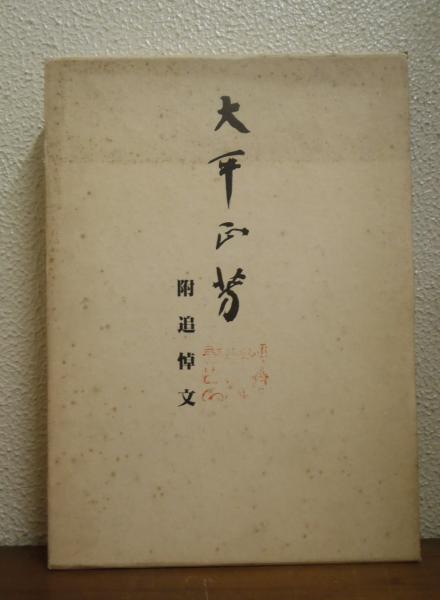 大平正芳
附追悼文